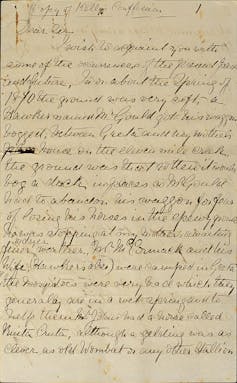 Copy of Kelly's Confession
Dear Sir,
I wish to acquaint you with
some of the occurrences of the present past
and future, In or about the spring of
1870 the ground was very soft, a
Hawker named Mr Gould got his waggon
bogged, between Greta and my mother's
house on the eleven mile creek,
the ground was that rotten it would
bog a duck in places so Mr Gould
had to abandon his waggon for fear
of losing his horses in the spewy ground
he was stopping at my mother's awaiting
finer or dryer weather, Mr McCormack and his
wife (Hawkers also) were camped in Greta
the mosquitoes were very bad which they
generally are in a wet spring and to
help them Mr Johns had a horse called
Ruita Cruta, although a gelding was as
clever as old Wombat or any other Stallion